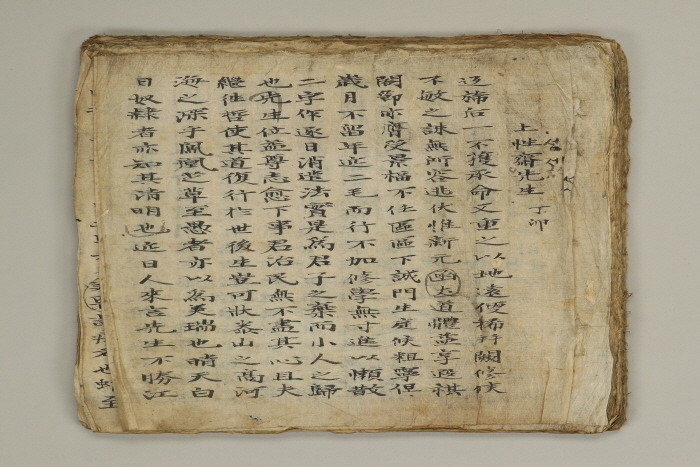 上性齋先生 丁卯
旆后一不獲承命又重之以地遠便稀許闕修候
不敏之誅無所容逃伏惟新元函丈道體益享遐祺
閤節亦膺受景福不任區區下誠門生庭候粗寧但
歲月不留年近二毛而行不加修學無寸進以懶散
二字作逐日消遣法實是爲君子之棄而小人之歸
也先生位益尊志愈下事君治民無不盡其心且夫
繼徃哲使其道復行於世後生豈可狀泰山之高河
海之深乎鳳凰芝草至愚者亦以爲美瑞也晴天白
日奴隸者亦知其淸明也近日人來言先生不勝江